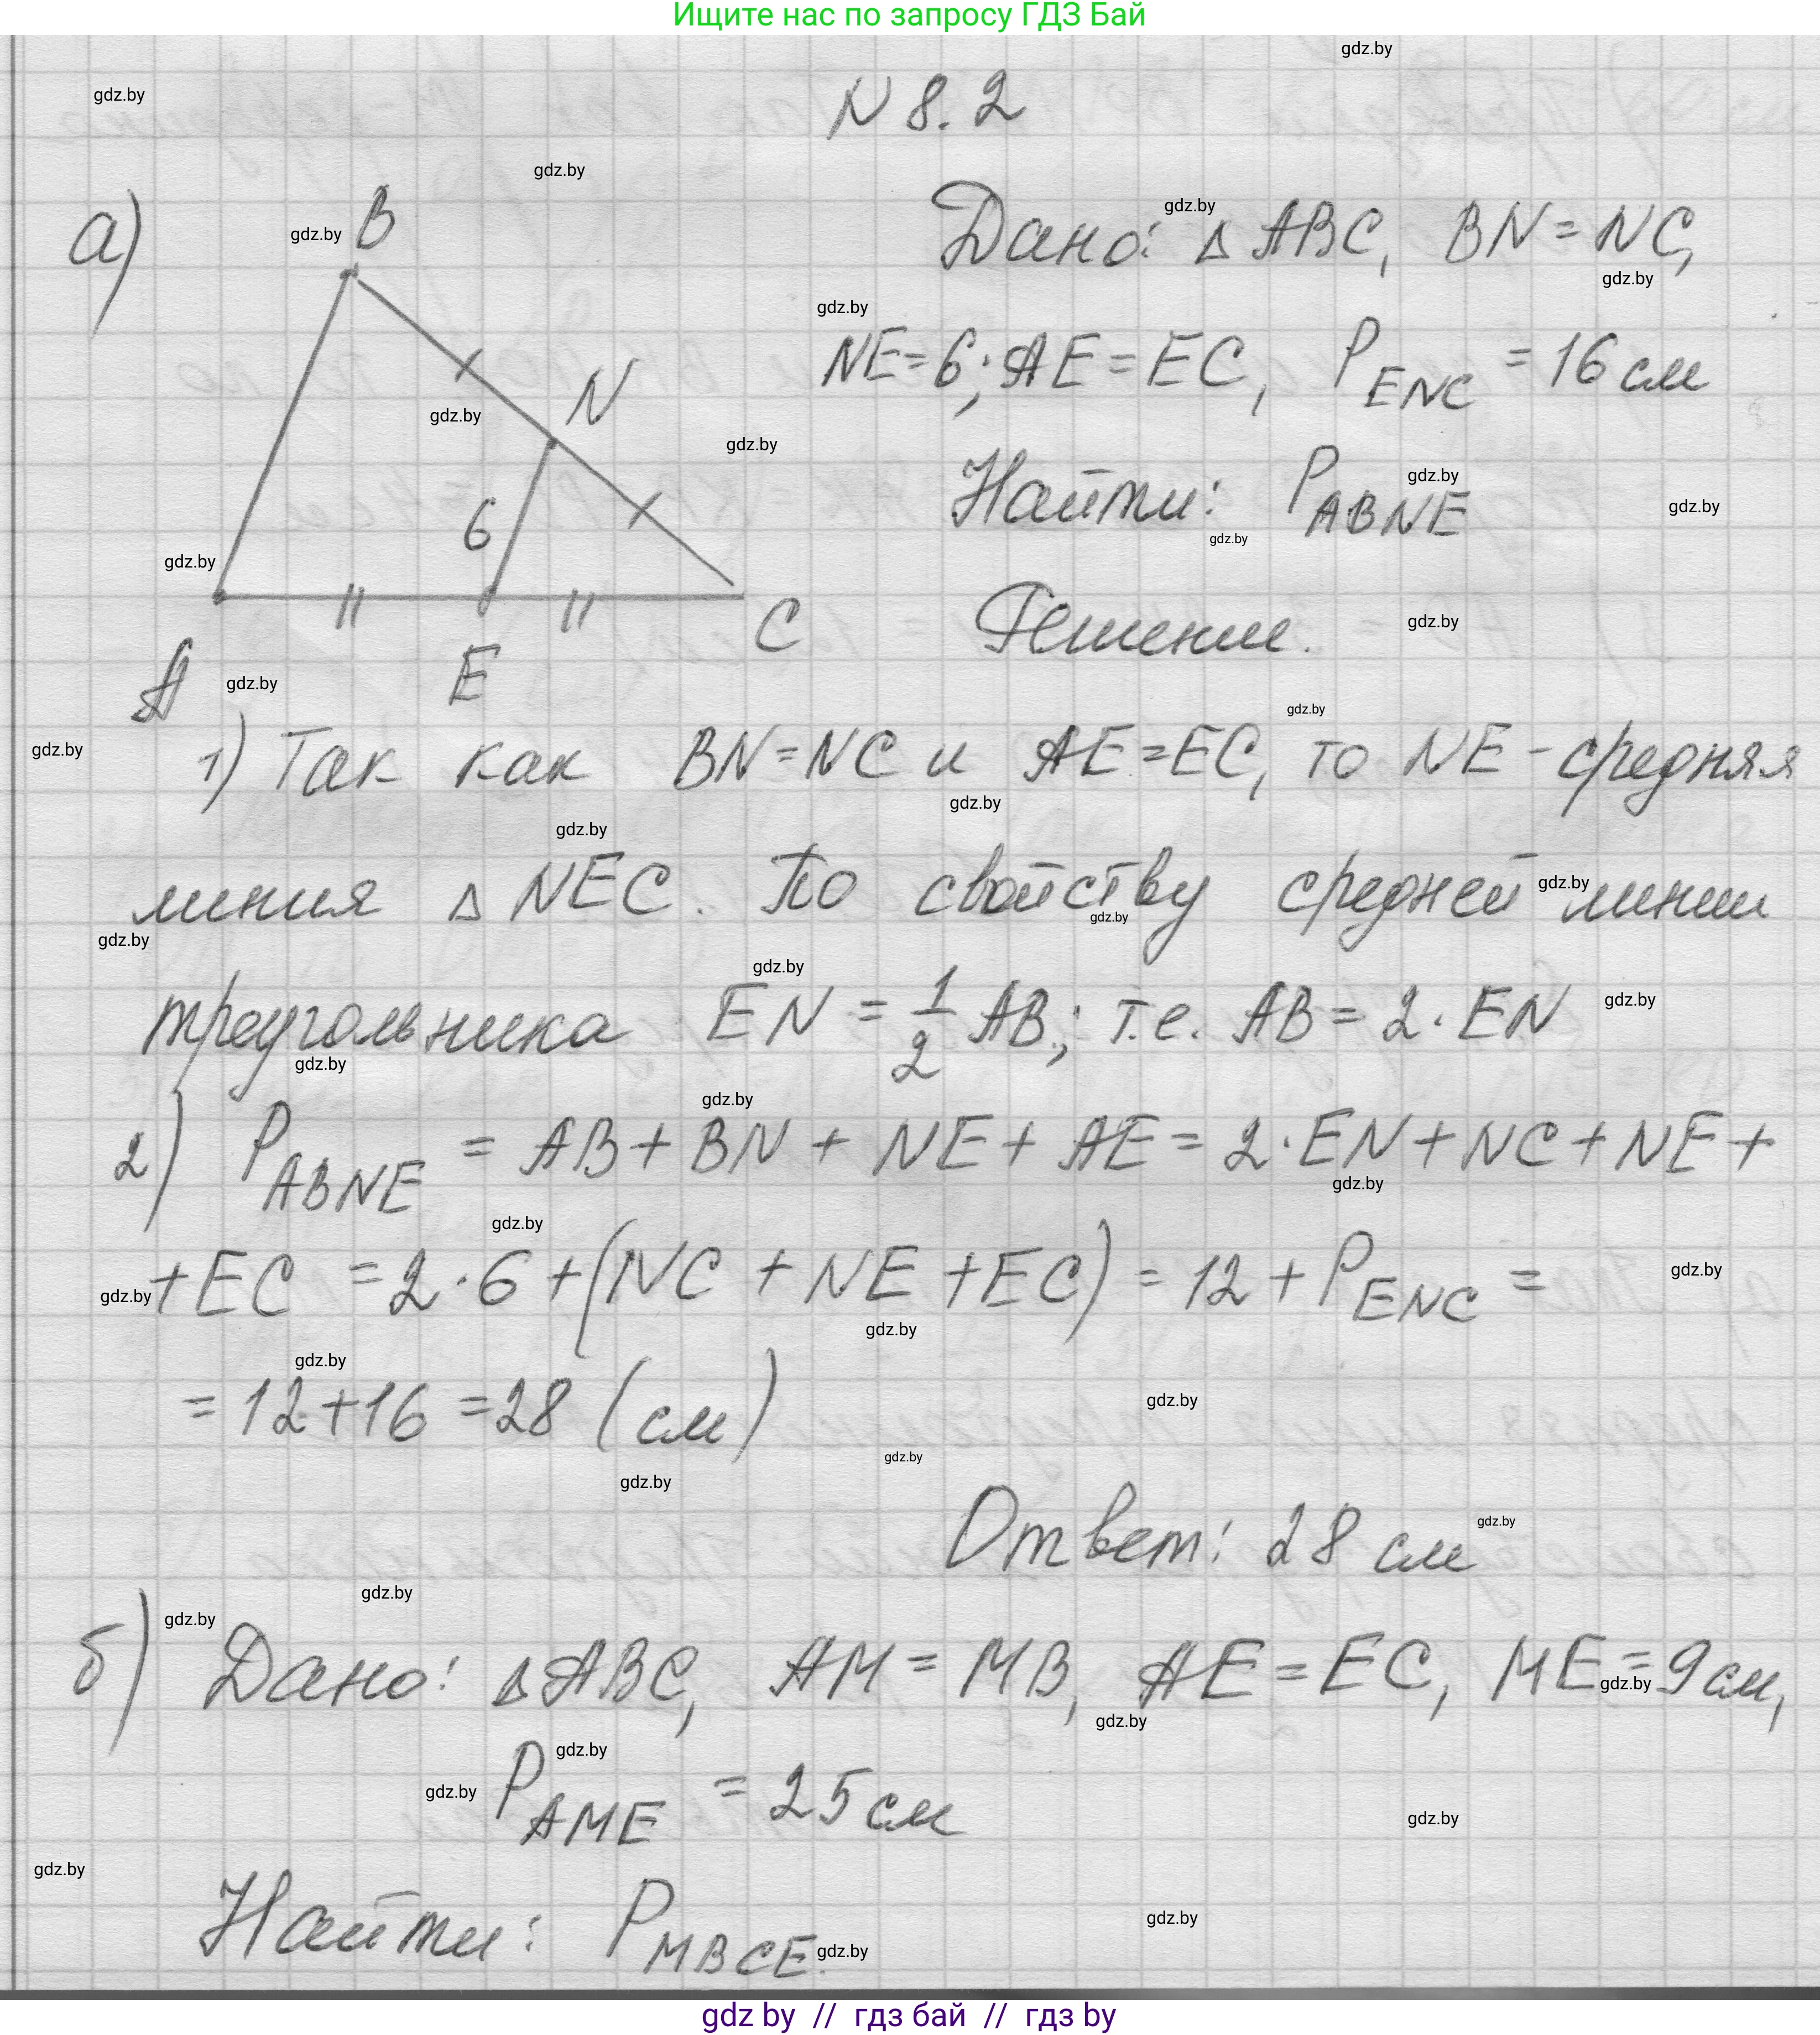 Ищите нас по запросу ГДЗ Бай
N 8.2
а)
B
N
6
A
E
C
Дано: Δ ABC, BN = NC,
NE = 6; AE = EC, P_ENC = 16 см
Найти: P_ABNE
Решение.
1) Так как BN = NC и AE = EC, то NE - средняя
линия Δ NEC. По свойству средней линии
треугольника EN = 1/2 AB; т.е. AB = 2 · EN
2) P_ABNE = AB + BN + NE + AE = 2 · EN + NC + NE +
+ EC = 2 · 6 + (NC + NE + EC) = 12 + P_ENC =
= 12 + 16 = 28 (см)
Ответ: 28 см
б) Дано: Δ ABC, AM = MB, AE = EC, ME = 9 см,
P_AME = 25 см
Найти: P_MBCE.
gdz by // гдз бай // гдз by